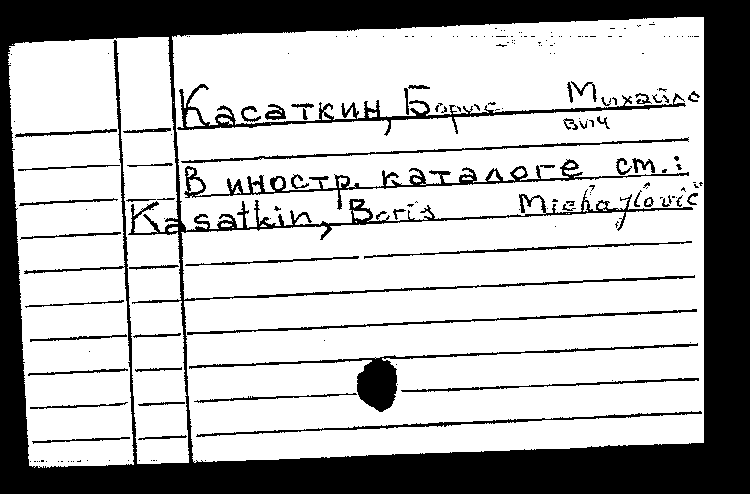 Касаткин, Борис Михайло
вич
В иностр. каталоге см.:
Kasatkin, Boris Michajlovič